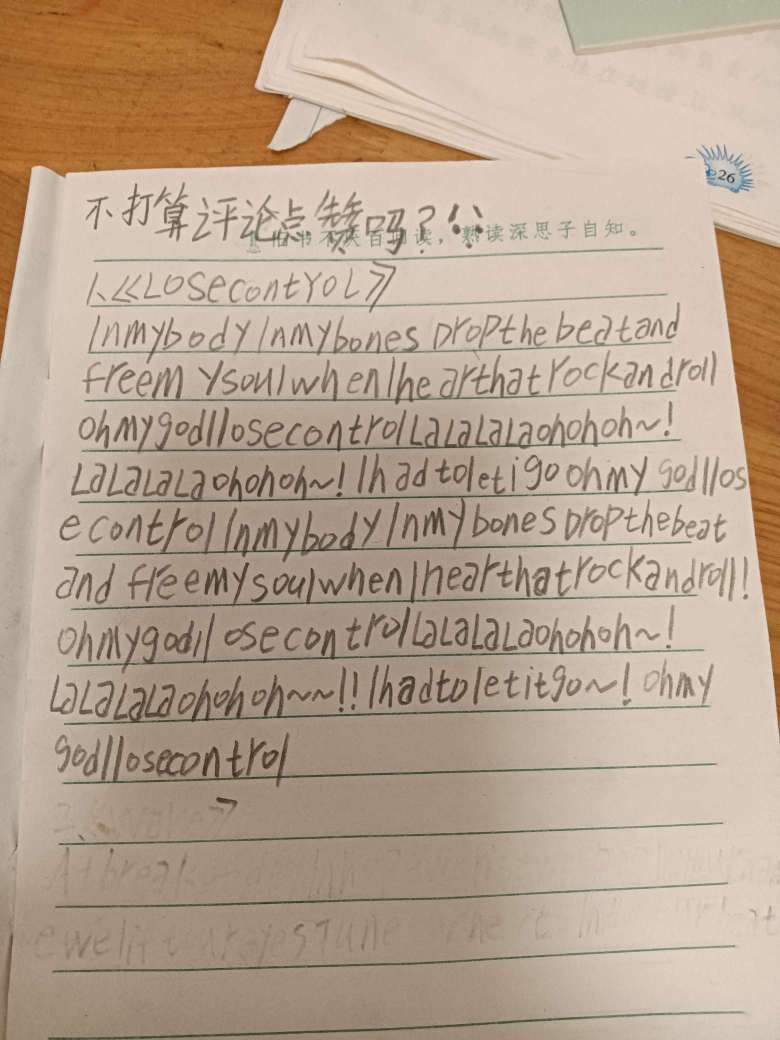 26
不打算评论点赞吗？
旧书不厌百回读，熟读深思子自知。
1、《LOSecontrol》
Inmybody Inmybones Dropthebeatand
freem ysoulwhenIhearthatrockandroll
ohmygodIlosecontrolLaLaLaLaohohoh~!
LaLaLaLaohohoh~! Ihadtoletigo ohmy godIlos
econtrol Inmybody Inmybones Dropthebeat
and freemysoulwhenIhearthatrockandroll!
ohmygodIl osecontrolLaLaLaLaohohoh~!
LaLaLaLaohohoh~~!! Ihadtoletitgo~! ohmy
godIlosecontrol